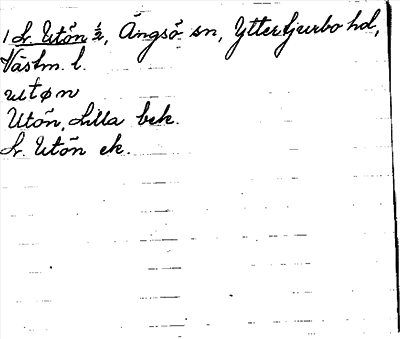 1 L. Utön ½, Ängsö sn, Yttertjurbo hd,
Västm. l.
utøn
Utön, Lilla bek.
L. Utön ek.